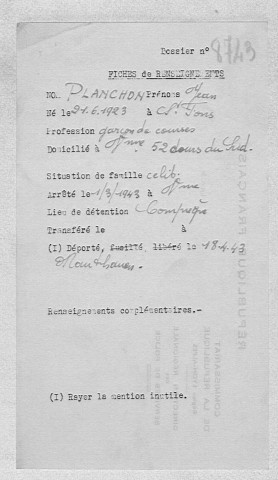 Dossier n° 8743
FICHES de RENSEIGNEMENTS
NOM PLANCHON Prénoms Jean
Né le 21.6.1923 à St Fons
Profession garçon de courses
Domicilié à 52 cours du Sud.
Situation de famille celib.
Arrêté le 1/3/1943 à
Lieu de détention Compiègne
Transféré le à
(I) Déporté, fusillé, libéré le 18.4.43
Mauthausen.
Renseignements complémentaires.-
(I) Rayer la mention inutile.
REPUBLIQUE FRANÇAISE
COMMISSARIAT
DE LA REPUBLIQUE